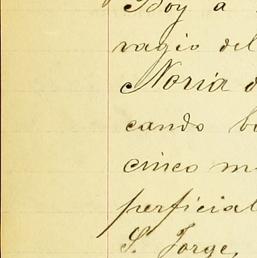 Doy a
vagio del
Noria d
cando bu
cinco m
perficial
S. Jorge,